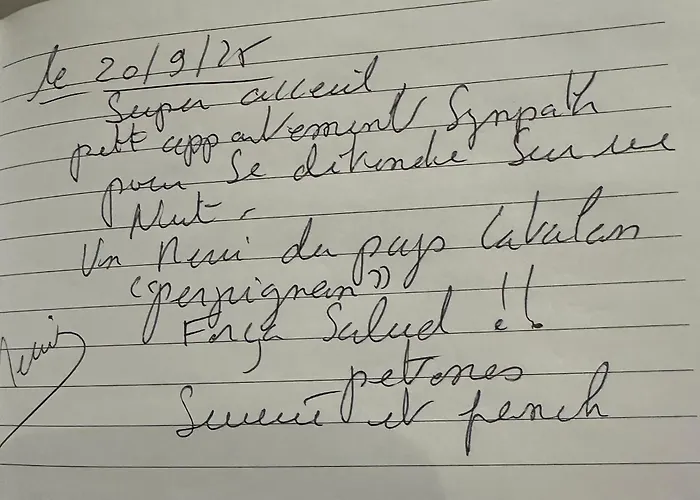 le 20/9/25
Super acceuil,
petit appartement Sympath
pour Se détendre Sur une
Nuit.
Un Merci du pays Catalan
"perpignan"
Força Salud !!
petones
et